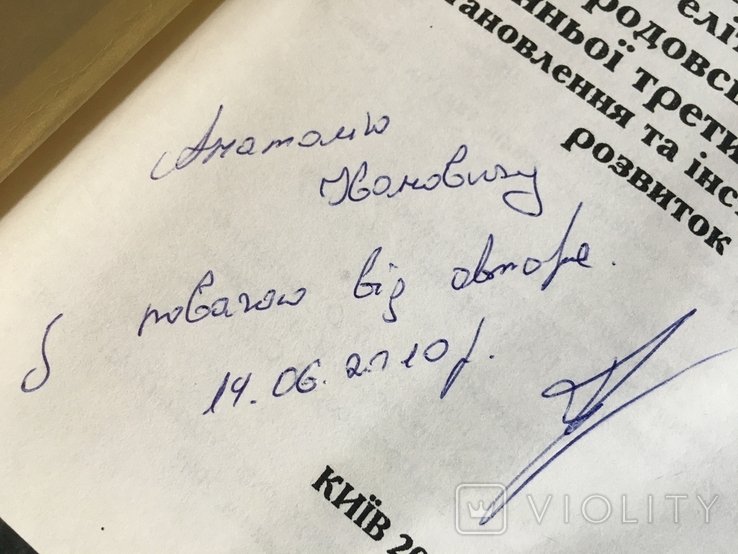 еліт
родовсь
нньої трети
тановлення та інст
розвиток
Анатолію
Івановичу
З повагою від автора.
14.06.2010р.
КИЇВ 20
VIOLITY